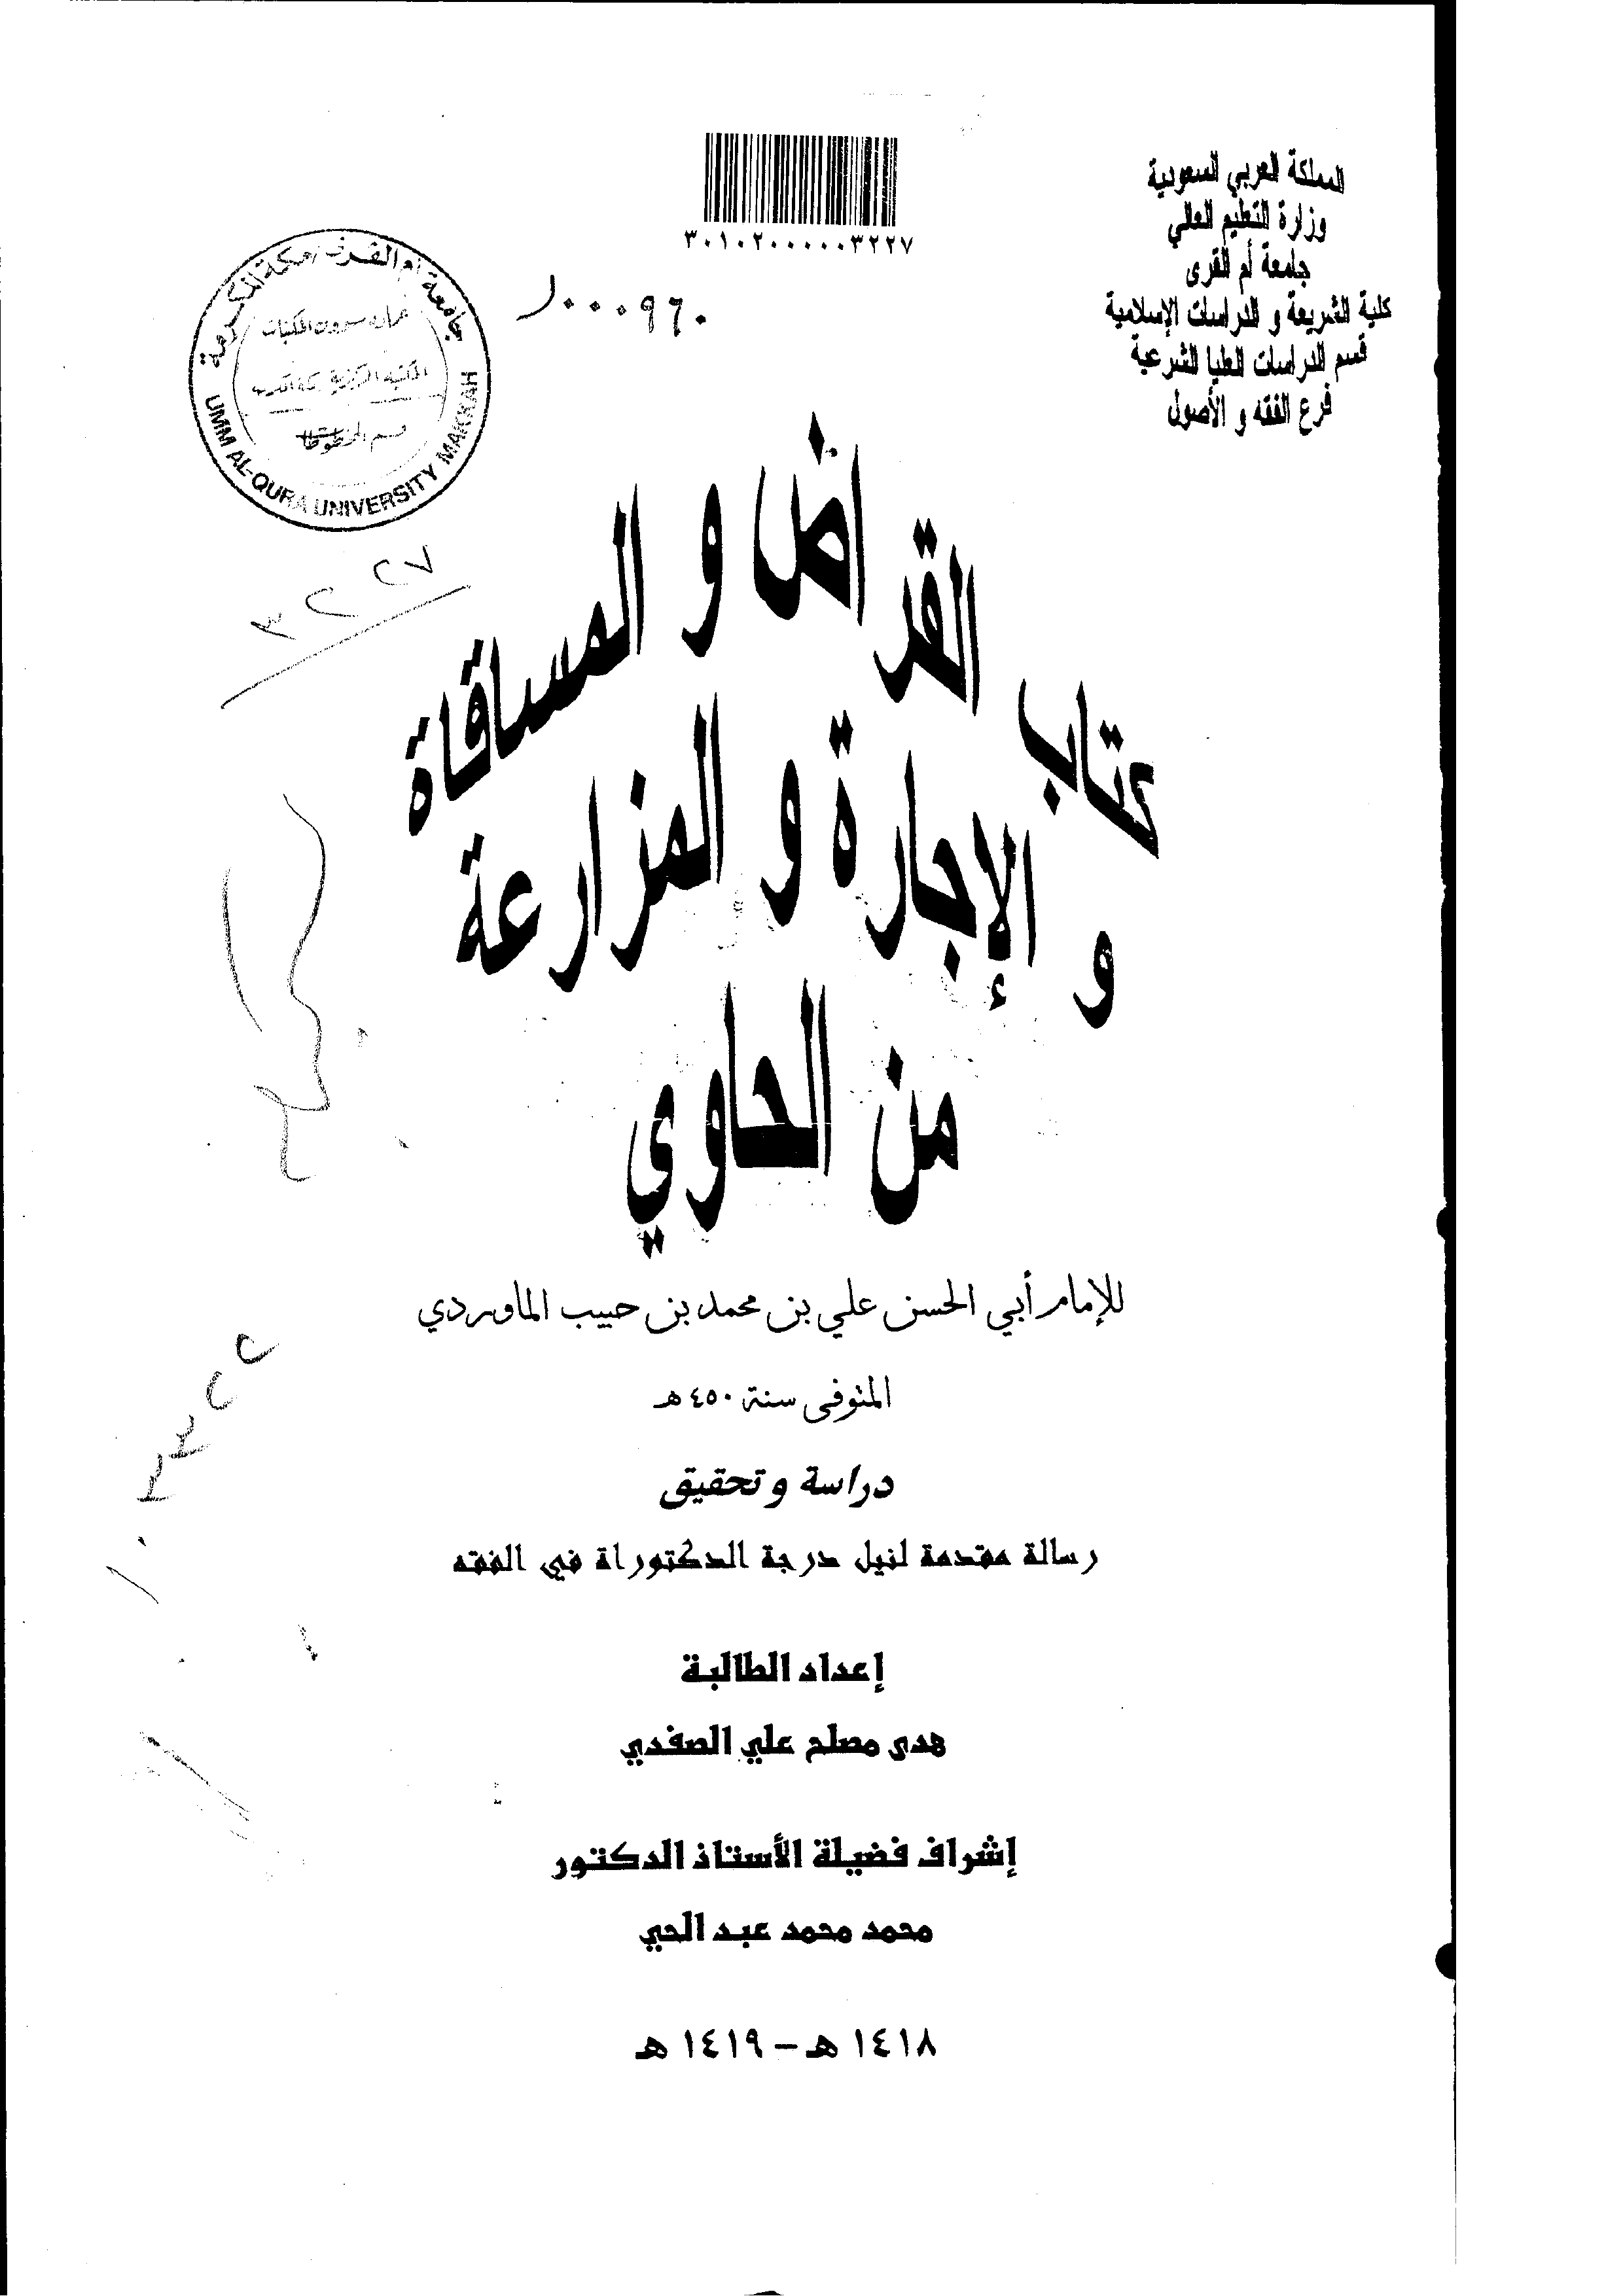 المملكة العربي السعودية
وزارة التعليم العالي
جامعة أم القرى
كلية الشريعة و الدراسات الإسلامية
قسم الدراسات العليا الشرعية
فرع الفقه و الأصول
٣٠١٠٢٠٠٠٠٠٣٢٢٧
جامعة أم القرى مكة المكرمة
UMM AL-QURA UNIVERSITY MAKKAH
٣٢٢٧
كتاب القراض و المساقاة
و الإجارة و المزارعة
من الحاوي
للإمام أبي الحسن علي بن محمد بن حبيب الماوردي
المتوفى سنة ٤٥٠ هـ
دراسة و تحقيق
رسالة مقدمة لنيل درجة الدكتوراة في الفقه
إعداد الطالبة
هدى مصلح علي الصفدي
إشراف فضيلة الأستاذ الدكتور
محمد محمد عبد الحي
١٤١٨ هـ – ١٤١٩ هـ